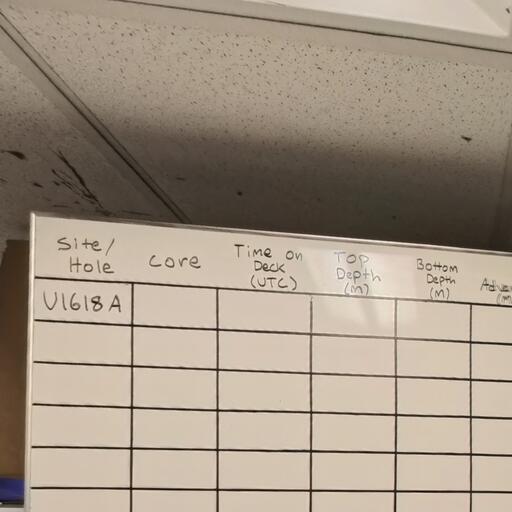 Site/
Hole
Core
Time on
Deck
(UTC)
Top
Depth
(M)
Bottom
Depth
(M)
U1618A